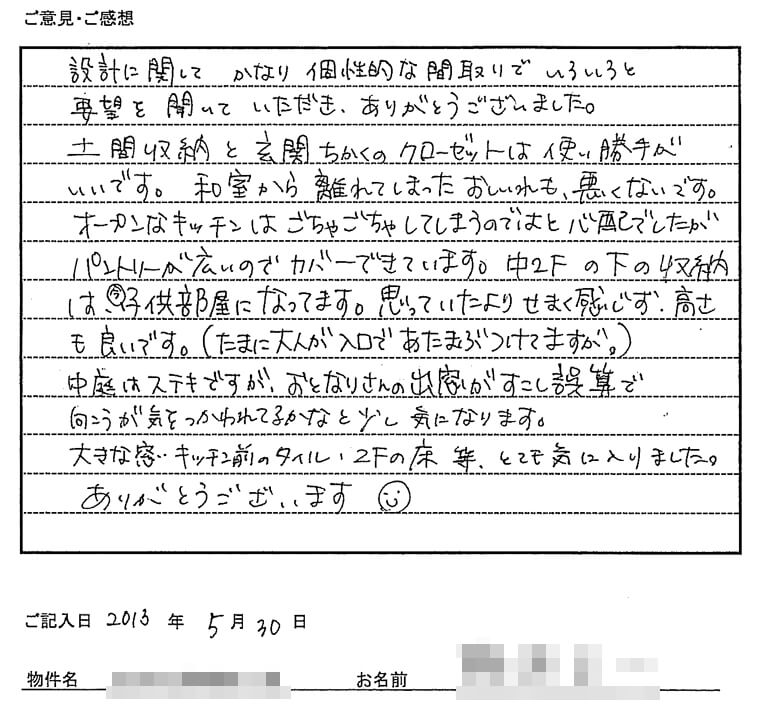 ご意見・ご感想
設計に関して かなり 個性的な間取りで いろいろと
要望を 聞いて いただき、ありがとうございました。
土間収納 と 玄関ちかくの クローゼットは 使い勝手が
いいです。 和室から 離れてしまった おしいれも、悪くないです。
オープンなキッチンは ごちゃごちゃしてしまうのではと 心配でしたが
パントリーが広いのでカバーできています。中2F の 下の収納
は 今 子供部屋になってます。思っていたより せまく感じず、高さ
も 良いです。(たまに大人が入口で あたまぶつけてますが。)
中庭はステキですが、おとなりさんの出窓がすこし誤算で
向こうが気をつかわれてるかなと少し 気になります。
大きな窓・キッチン前のタイル・2Fの床 等、とても気に入りました。
ありがとうございます
ご記入日 2013 年 5月 30 日
物件名 お名前